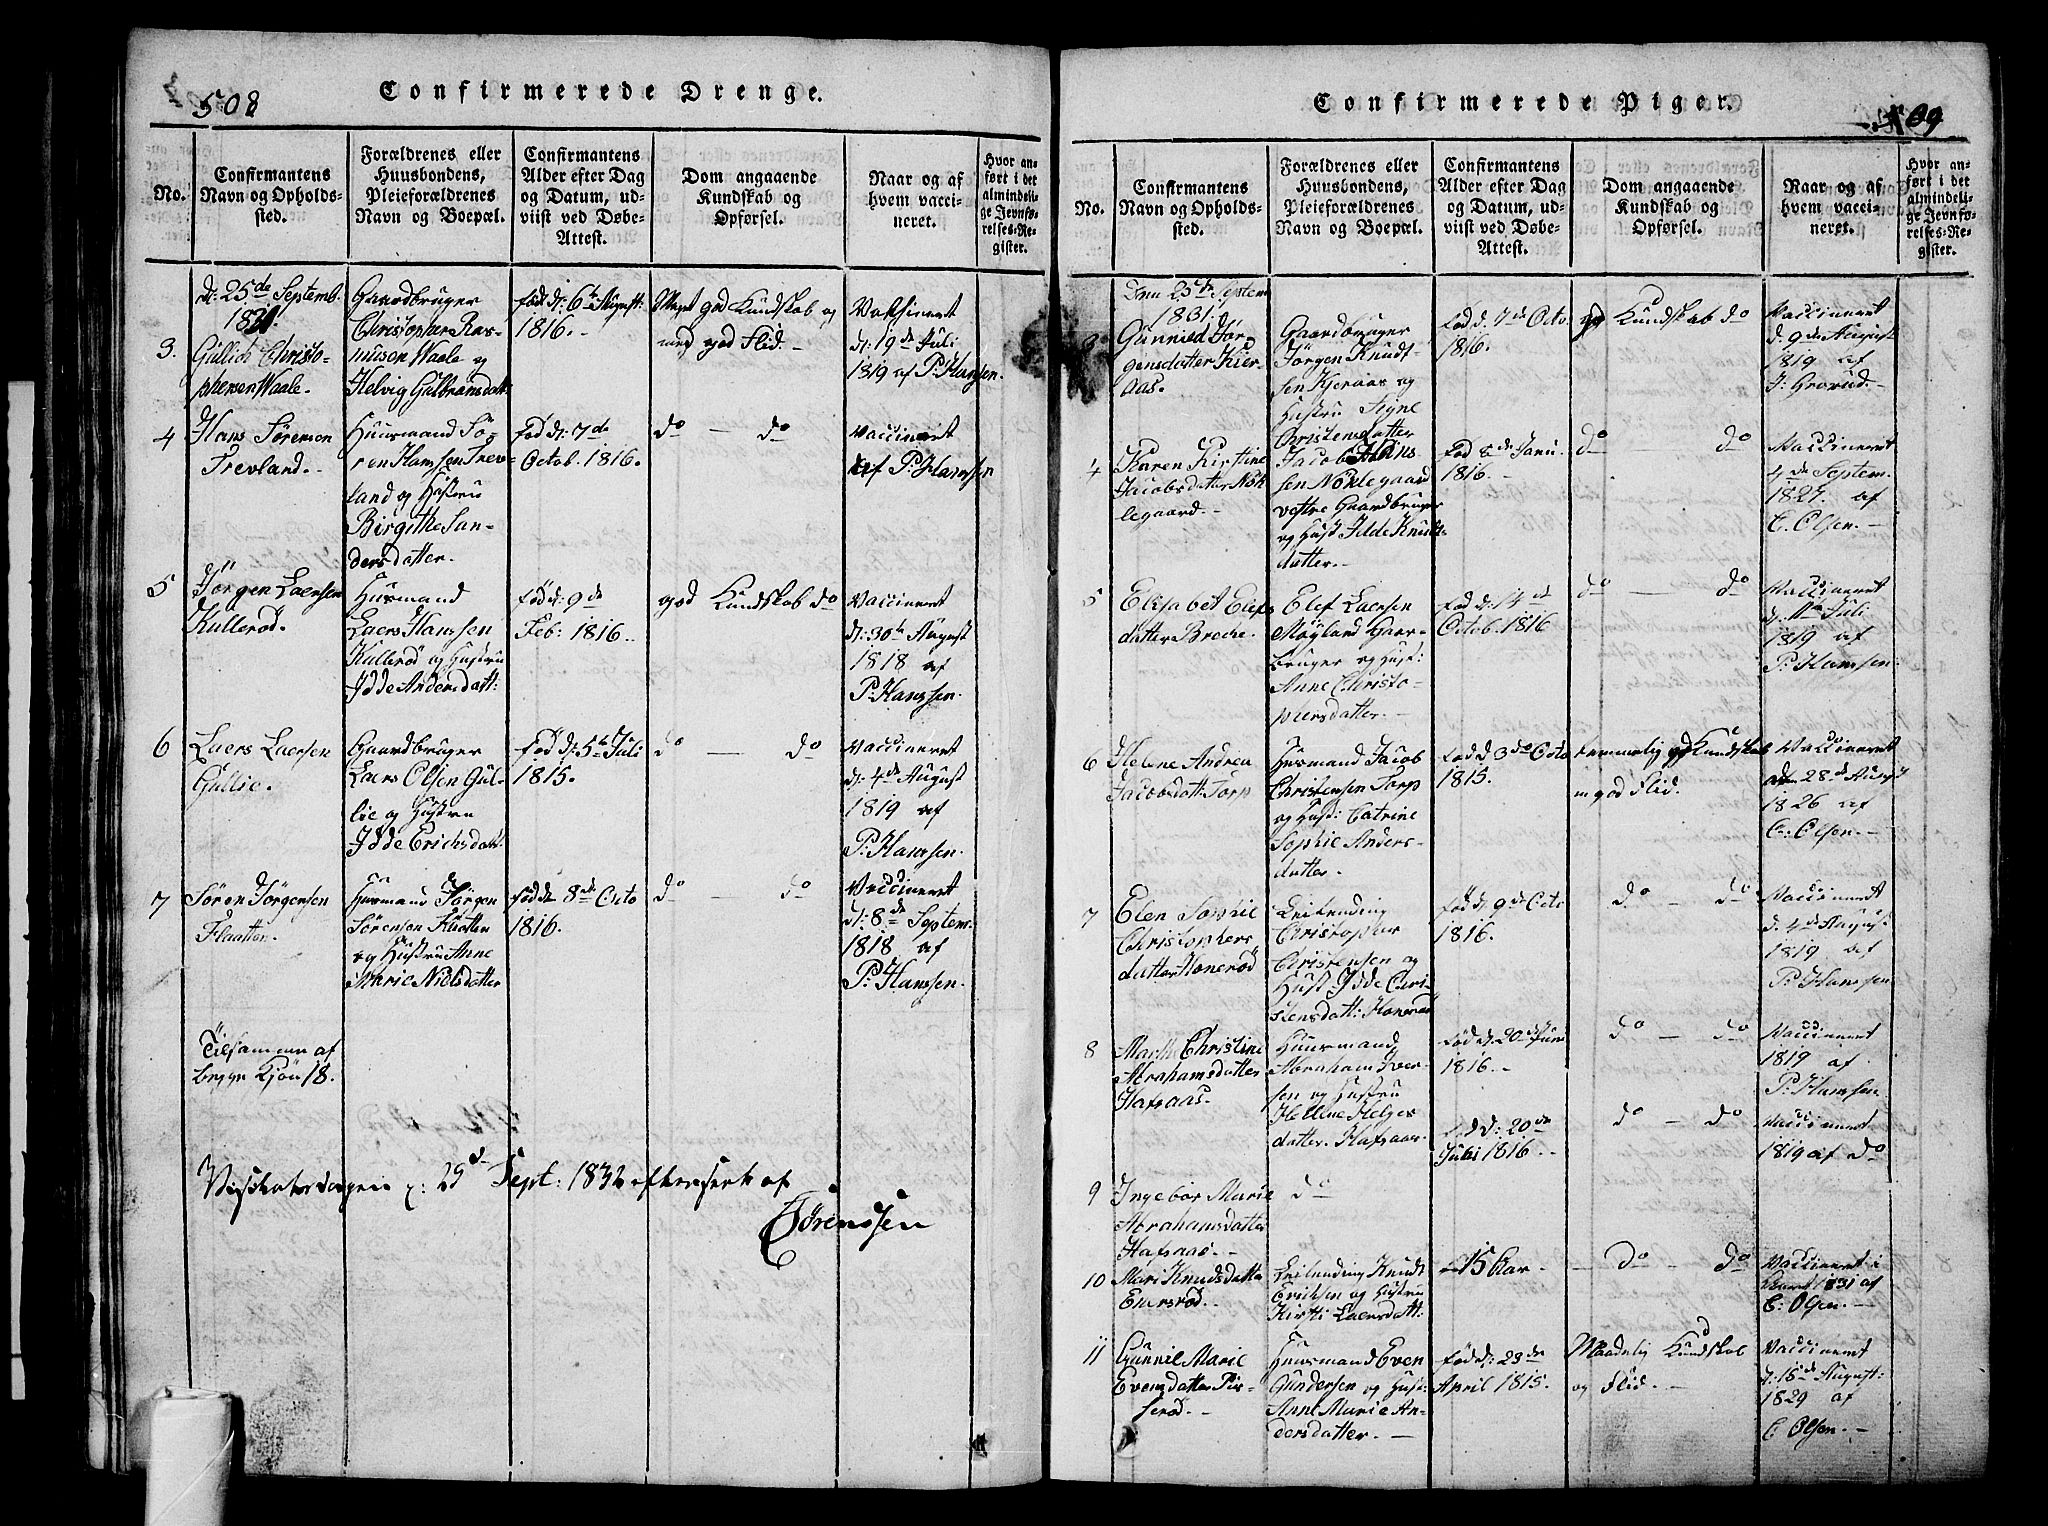 508
Confirmerede Drenge.
No.
Confirmantens
Navn og Opholds-
sted.
Forældrenes eller
Huusbondens,
Pleieforældrenes
Navn og Boepæl.
Confirmantens
Alder efter Dag
og Datum, ud-
viist ved Døbe-
Attest.
Dom angaaende
Kundskab og
Opførsel.
Naar og af
hvem vacci-
neret.
Hvor an-
ført i det
almindeli-
ge Jevnfø-
relses-Re-
gister.
d: 25de Septemb.
1831.
3.
Gullich Christo-
phersen Waale.
Gaardbruger
Christopher Ras-
musen Waale og
Helvig Gulbransdatt:
født d: 6te August:
1816.
Meget god Kundskab og
meget god Flid.
Vaksineret
d: 19de Juli
1819 af P: Hanssen.
4
Hans Sørensen
Trevland.
Huusmand Sø-
ren Hanssen Trev-
land og Hustru
Birgithe San-
dersdatter.
Fød d: 7de
Octob. 1816.
do — do
Vaccineret
af P: Hanssen
5
Jørgen Laersen
Kullerød.
Husmand
Laers Hanssen
Kullerød og Hustru
Idde Andersdatt:
født d: 9de
Feb: 1816.
god Kundskab do
Vaccineret
d: 30te August
1818 af
P: Hanssen.
6
Laers Laersen
Gullie.
Gaardbruger
Laers Olsen Gul-
lie og Hustru
Idde Erichsdatt:
fød d: 5te Juli
1815.
do — do
Vaccineret
d: 4de August
1819 af
P: Hanssen.
7
Søren Jørgensen
Flaatten.
Husmand Jørgen
Sørensen Flaatten
og Hustru Anne
Marie Nielsdatter
født d 8de Octo
1816.
do — do
Vaccineret
d: 8de Septem.
1818 af
P: Hanssen.
Tilsammen af
begge Kjøn 18.
Visitatsdagen d: 29d Sept: 1832 efterseet af
Sørenssen
509
Confirmerede Piger.
No.
Confirmantens
Navn og Opholds-
sted.
Forældrenes eller
Huusbondens,
Pleieforældrenes
Navn og Boepæl.
Confirmantens
Alder efter Dag
og Datum, ud-
viist ved Døbe-
Attest.
Dom angaaende
Kundskab og
Opførsel.
Naar og af
hvem vacci-
neret.
Hvor an-
ført i det
almindeli-
ge Jevnfø-
relses-Re-
gister.
Den 25de Septem
1831.
3
Gunnild Jør-
gensdatter Kier-
aas.
Gaardbruger
Jørgen Knudt-
sen Kjeraas og
Hustru Signe
Christensdatter
fød d. 7de Octo.
1816.
god Kundskab do
Vaccineret
d. 9de August
1819 af
J: Grorud.
4
Karen Kirstine
Jacobsdatter Nøk-
legaard.
Jacob Hans-
sen Nøklegaard
vestre Gaardbruger
og Hust Idde Knudt-
datter.
fød 8de Janu.
1816.
do — do
Vaccineret
4de Septem.
1827. af
C. Olsen.
5
Elisabet Elefs
datter Breche.
Elef Laersen
Møyland Gaar-
bruger og Hust:
Anne Christo-
phersdatter.
fød d: 14de
Octob. 1816
do — do
Vaccineret
Juli
1819 af
P: Hanssen.
6
Helene Andrea
Jacobsdatt: Torp
Husmand Jacob
Christensen Torp
og Hust: Catrine
Sophie Anders-
datter.
fød d 3de Octo
1815.
temmelig god Kundskab
og god Flid.
Vaccineret
28de August
1826 af
C: Olsen.
7
Elen Sophie
Christophers
datter Honerød
Leilending
Christopher
Christensen og
Hust Idde Chri-
stensdatt: Honerød
fød d. 9de Octo
1816.
do — do
Vaccineret
d. 4de August
1819 af
P: Hanssen
8
Marthe Christine
Abrahamsdatter
Hafsaas.
Huusmand
Abraham Iver-
sen og Hustru
Hellene Helges
datter. Hafsaas.
fød d: 20de Juni
1816.
do — do
Vaccineret
1819 af
P: Hanssen
9
Ingebor Marie
Abrahamsdatter
Hafsaas.
do
d: 20de
Juli 1816.
do — do
Vaccineret
1819 af do
10
Mari Knudsdatter
Enersrød.
Leilending Knudt
Erichsen og Hustru
Kirsti Laersdatt:
15 Aar.
do do
Vaccineret i
1831 af
C: Olsen.
11
Gunnil Marie
Evensdatter Pir-
serød.
Huusmand Even
Gundersen og Hust
Anne Marie An-
dersdatter.
fød d: 23de
April 1815.
Maadelig Kundskab
og Flid.
Vaccineret
d. 15de August:
1829 af
C. Olsen.